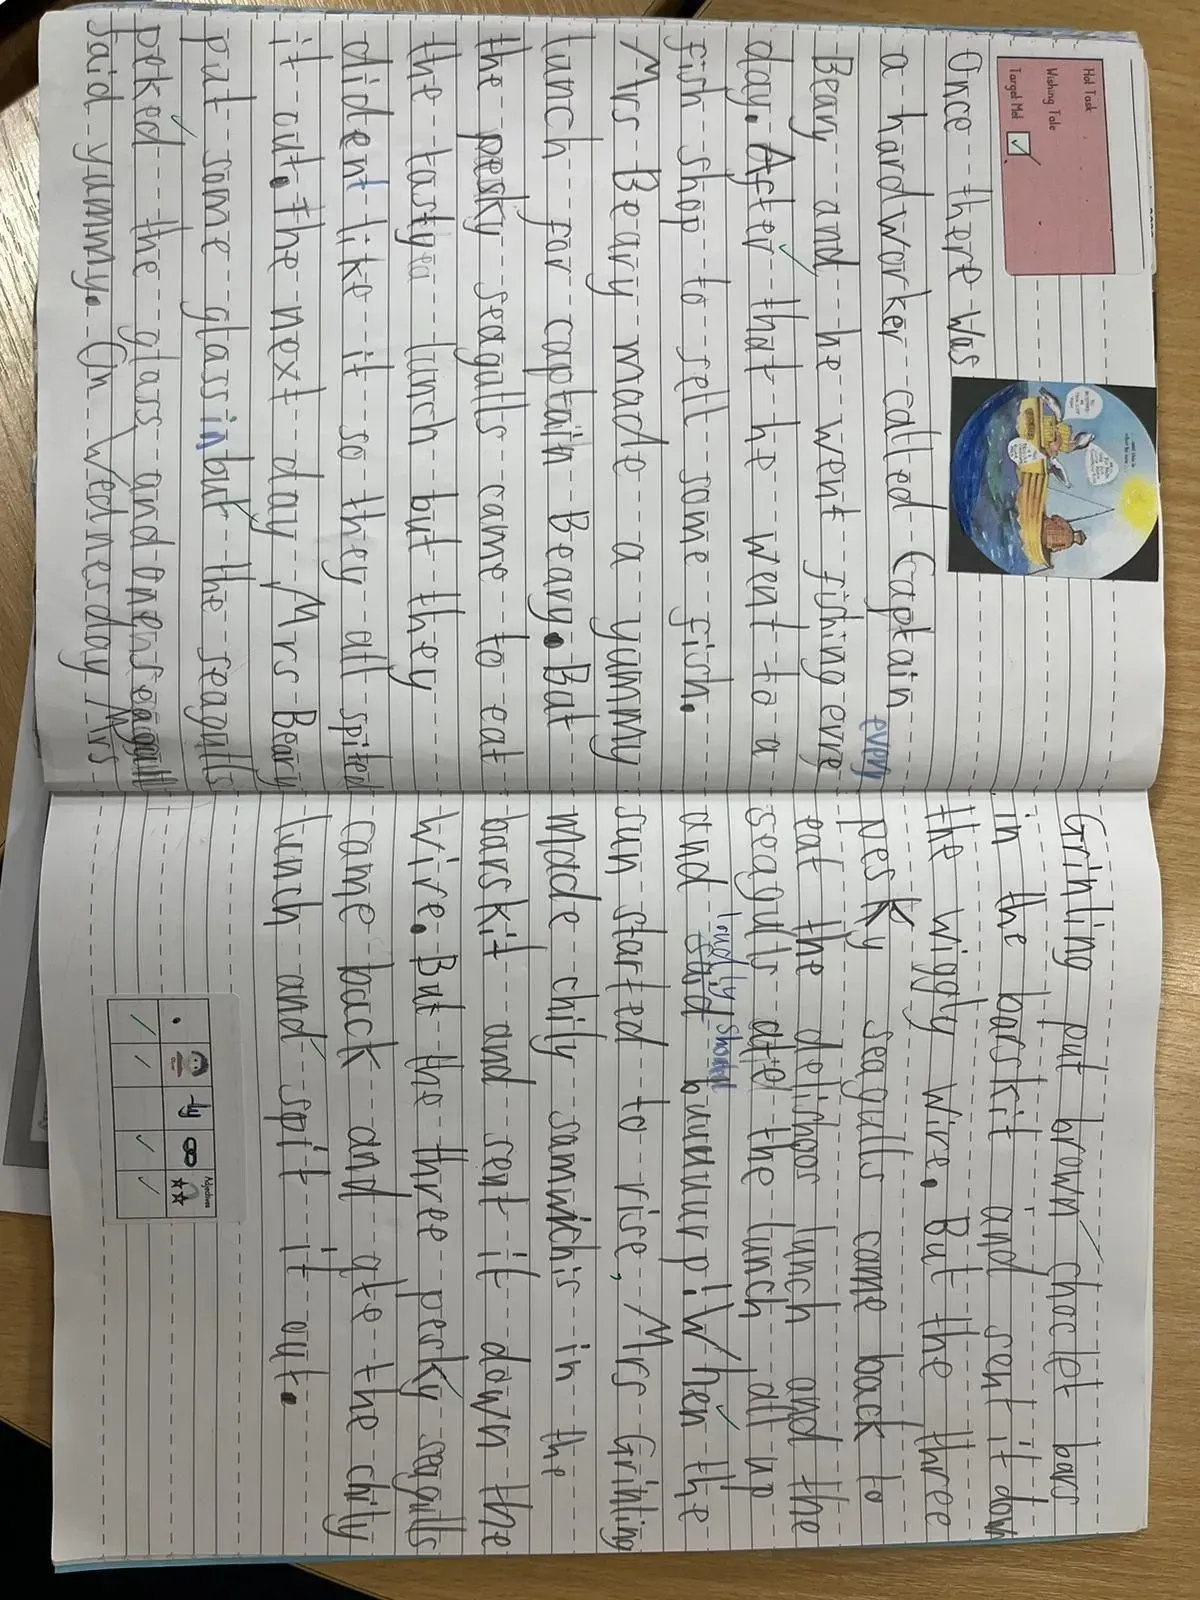 Hot Task
Wishing Tale
Target Met
Once there was
a hardworker called Captain
every
Beary and he went fishing evre
day. After that he went to a
fish shop to sell some fish.
Mrs Beary made a yummy
lunch for captain Beary. But
the pesky seagulls came to eat
the tasty lunch but they
dident like it so they all spited
it out. the next day Mrs Beary
put some glass in but the seagulls
peked the glass and one seagull
said yummy. On Wednesday Mrs
Grinling put brown choclet bars
in the barskit and sent it down
the wiggly wire. But the three
pesky seagulls came back to
eat the delishos lunch and the
seagulls ate the lunch all up
loudly shouted
and said buuuurp! When the
sun started to rise, Mrs Grinling
made chily samwichis in the
barskit and sent it down the
wire. But the three pesky seagulls
came back and ate the chily
lunch and spit it out.
. ly Adjectives